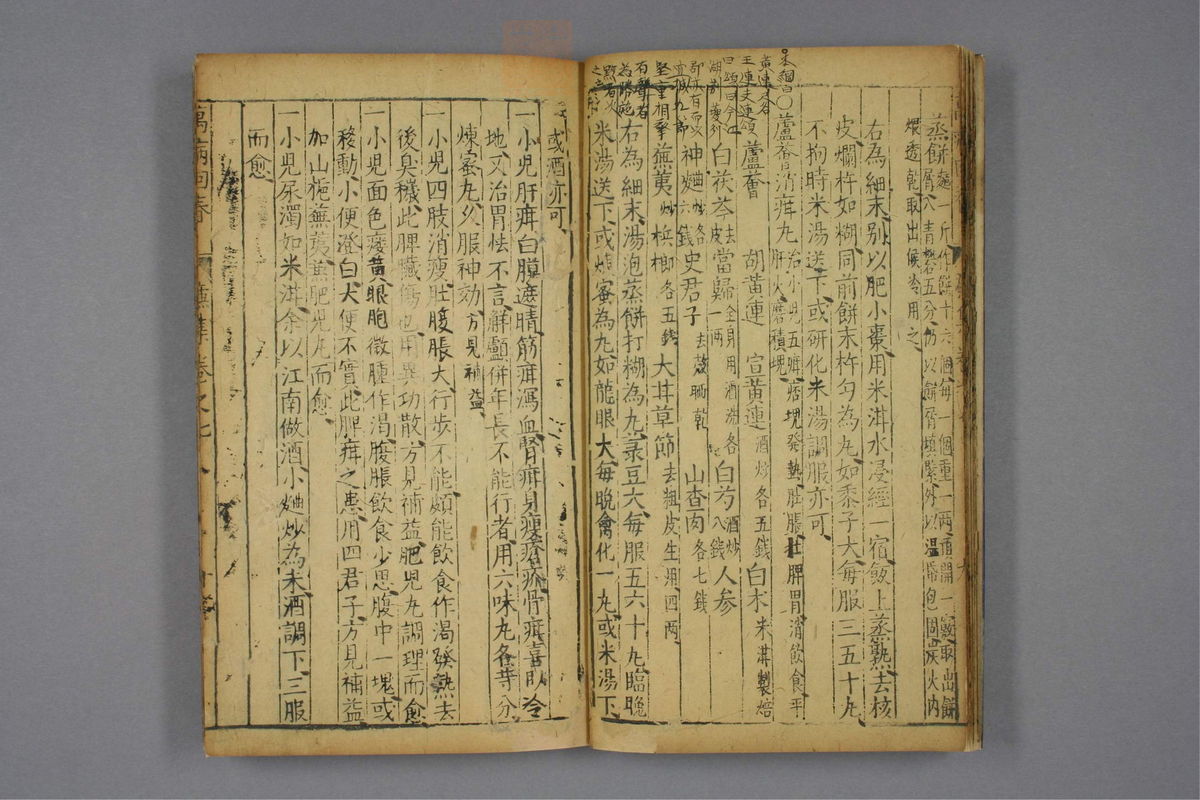 蒸餅麵一斤作餅十六個每一個重一兩
煨透乾取出候冷用之
右為細末別以肥小棗用米泔水浸經一宿飯上蒸熟去核
皮爛杵如糊同前餅末杵勻為丸如黍子大每服三五十丸
不拘時米湯送下或研化米湯調服亦可
蘆薈消疳丸治小兒五疳痞塊發熱肚脹壯脾胃消飲食平
肝火磨積塊
蘆薈 胡黃連 宣黃連酒炒各五錢白朮米泔製焙
白茯苓去皮當歸全身用酒洗各一兩白芍酒炒八錢人參
神麯炒六錢史君子去殼晒乾山查肉各七錢
蕪荑炒檳榔各五錢大甘草節去粗皮生用四兩
右為細末湯泡蒸餅打糊為丸菉豆大每服五六十丸臨晚
米湯送下或煉蜜為丸如龍眼大每晚禽化一丸或米湯下
或酒亦可
一小兒肝疳白膜遮睛筋疳瀉血腎疳身瘦瘡疥骨疳喜臥冷
地又治胃怯不言解顱併年長不能行者用六味丸各等分
煉蜜丸久服神効方見補益
一小兒四肢消瘦肚腹脹大行步不能頗能飲食作渴發熱去
後臭穢此脾臟傷也用異功散方見補益肥兒丸調理而愈
一小兒面色痿黃眼胞微腫作渴腹脹飲食少思腹中一塊或
移動小便澄白大便不實此脾疳之患用四君子方見補益
加山梔蕪荑兼肥兒丸而愈
一小兒尿濁如米泔余以江南做酒小麯炒為末酒調下三服
而愈
萬病回春
卷之七